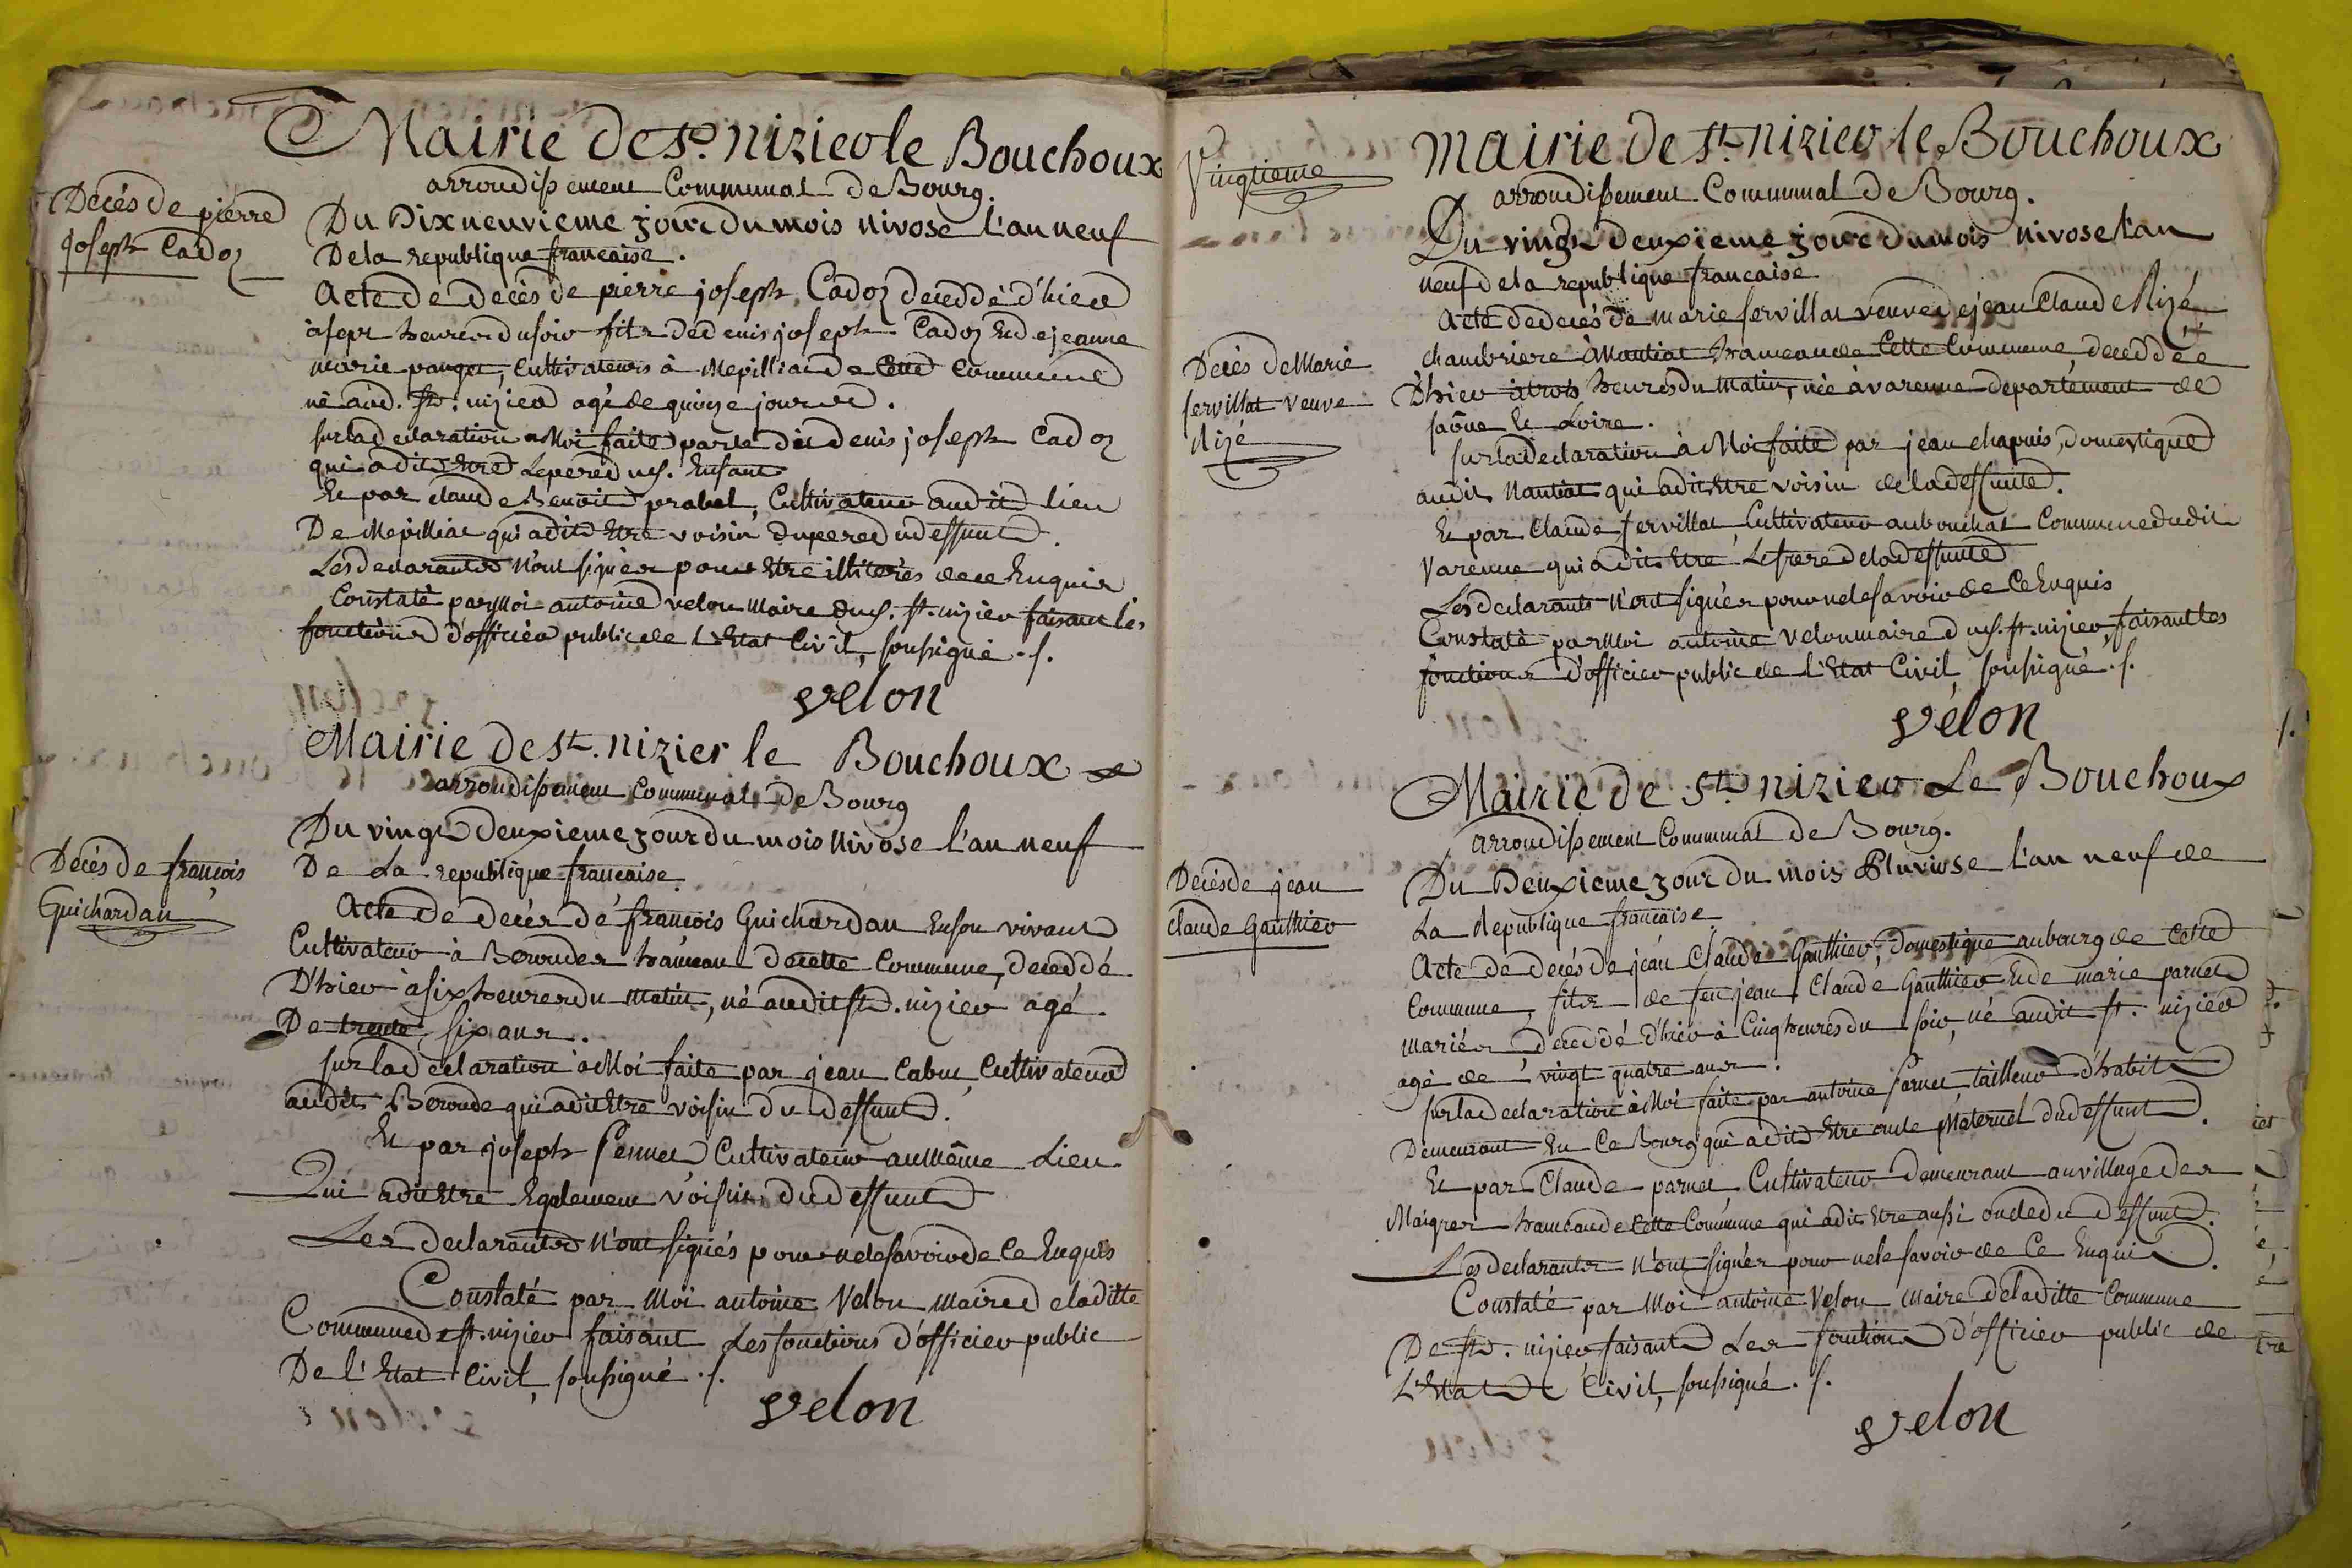 Mairie de St. nizier le Bouchoux
arrondissement Communal de Bourg.
Décès de pierre
joseph Cadoz
Du Dix neuvieme jour du mois nivose l'an neuf
De la republique francaise.
Acte de decès de pierre joseph Cadoz decedé d'hier
à sept heures du soir fils de denis joseph Cadoz Et de jeanne
marie panget, Cultivateurs à Mepilliat de Cette Commune
né aud. St. nizier agé de quinze jours.
sur la declaration a Moi faite par le dit denis joseph Cadoz
qui a dit Etre Le pere dud. Enfant
Et par claude Benoit prabel, Cultivateur audit lieu
De Mepilliat qui a dit Etre voisin du pere du deffunt.
Les declarants N'ont signés pour Etre illiterés de ce Enquis
Constaté par Moi antoine velon Maire dud. St. nizier faisant les
fonctions d'officier public de L'Etat Civil, soussigné ./.
velon
Mairie de St. nizier le Bouchoux
arrondissement Communal de Bourg
Décès de françois
Guichardan
Du vingt Deuxieme jour du mois Nivose l'an neuf
De La republique francaise.
Acte de decés de françois Guichardan En son vivant
Cultivateur à Beroudes hameau de cette Commune, decedé
D'hier à six heures du Matin, né audit St. nizier agé
De trente six ans.
sur la declaration à Moi faite par jean Cabut Cultivateur
audit Beroude qui a dit Etre voisin du deffunt.
Et par joseph Cultivateur au Même Lieu
Qui a dit Etre Egalement voisin du deffunt
Les declarants N'ont signés pour ne le savoir de Ce Enquis
Constaté par Moi antoine Velon Maire de la ditte
Commune de St. nizier faisant Les fonctions d'officier public
De l'Etat Civil, soussigné ./.
velon
Vingtieme
Mairie de St. nizier le Bouchoux
arrondissement Communal de Bourg.
Du vingt deuxieme jour du mois nivose l'an
neuf de la republique francaise
Décès de Marie
servillat veuve
Nizé
Acte de decés de marie servillat veuve de jean Claude Nizé
chambriere à Mantiat hameau de Cette Commune, decedée
D'hier à trois heures du Matin, née à varenne departement de
saône Et Loire.
sur la declaration à Moi faite par jean chapuis, domestique
audit Mantiat qui a dit Etre voisin de la deffunte.
Et par Claude servillat, Cultivateur au bouchat Commune dudit
Varenne qui a dit Etre Le frere de la deffunte
Les declarants N'ont signés pour ne le savoir de Ce Enquis
Constaté par Moi antoine Velon maire dud. St. nizier, faisant les
fonctions d'officier public de L'Etat Civil, soussigné ./.
velon
Mairie de St. nizier Le Bouchoux
arrondissement Communal de Bourg.
Décès de jean
claude Gauthier
Du Deuxieme jour du mois Pluviose l'an neuf de
La Republique francaise
Acte de decés de jean Claude Gauthier, Domestique au bourg de Cette
Commune, fils de feu jean Claude Gauthier Et de marie parnet
mariés, decedé d'hier à Cinq heures du soir, né audit St. nizier
agé de vingt quatre ans.
sur la declaration à Moi faite par antoine parnet tailleur d'habits
Demeurant En Ce Bourg qui a dit Etre oncle Maternel du deffunt.
Et par Claude parnet, Cultivateur demeurant au village des
Maigres hameau de Cette Commune qui a dit Etre aussi oncle du deffunt.
Les declarants N'ont signés pour ne le savoir de Ce Enquis.
Constaté par Moi antoine Velon Maire de la ditte Commune
De St. nizier faisant Les fonctions d'officier public de
L'Etat Civil, soussigné ./.
velon